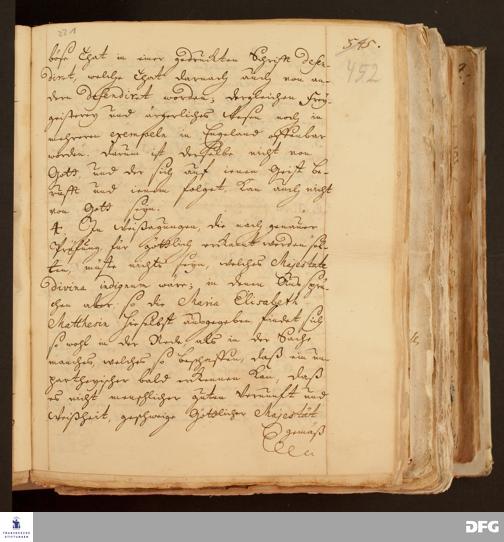 221
515.
452
böse That in einer gedrukten Schrifft defen-
diret, welche That darnach auch von an-
dern defendiret worden; dergleichen Frey-
geisterey und ärgerliches Wesen noch in
mehreren exempeln in Engeland offenbar
worden. Darum ist derselbe nicht von
Gott, und der sich auf jenen Geist be-
rufft und jenem folget, kan auch nicht
von Gott seyn.
4. In Weißagungen, die nach genauer
Prüfung für göttlich erkant werden sol-
ten, müste nichts seyn, welches Majestate
divina indignum wäre; in denen Aussprü-
chen aber, so die Maria Elisabeth
Matthesin hieselbst ausgegeben findet sich
so wohl in der Rede als in der Sache
manches, welches so beschaffen, daß ein un-
partheyischer bald erkennen kan, daß
es nicht menschlicher guten Vernunft und
Weißheit, geschweige Göttlicher Majestät
gemäß
FRANCKESCHE
STIFTUNGEN
DFG